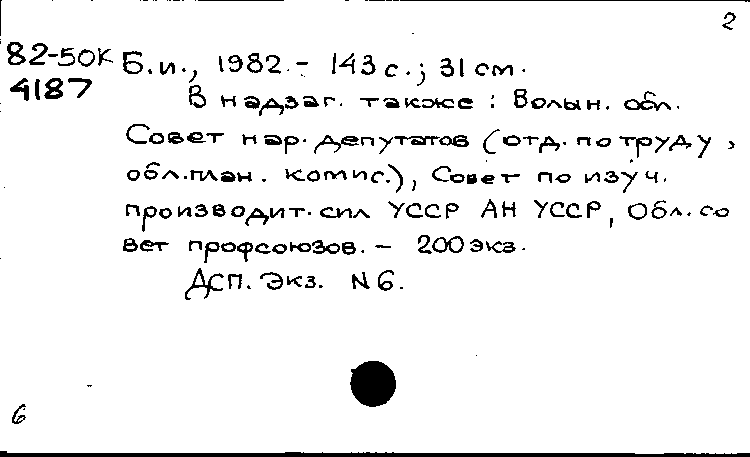 2
82-50К Б.и., 1982.- 143 с.; 31 см.
4187
В надзаг. также: Волын. обл.
Совет нар. депутатов (отд. по труду,
обл. план. комис.), Совет по изуч.
производит. сил УССР АН УССР, Обл. со
вет профсоюзов. - 200 экз.
ДСП. Экз. N 6.
6